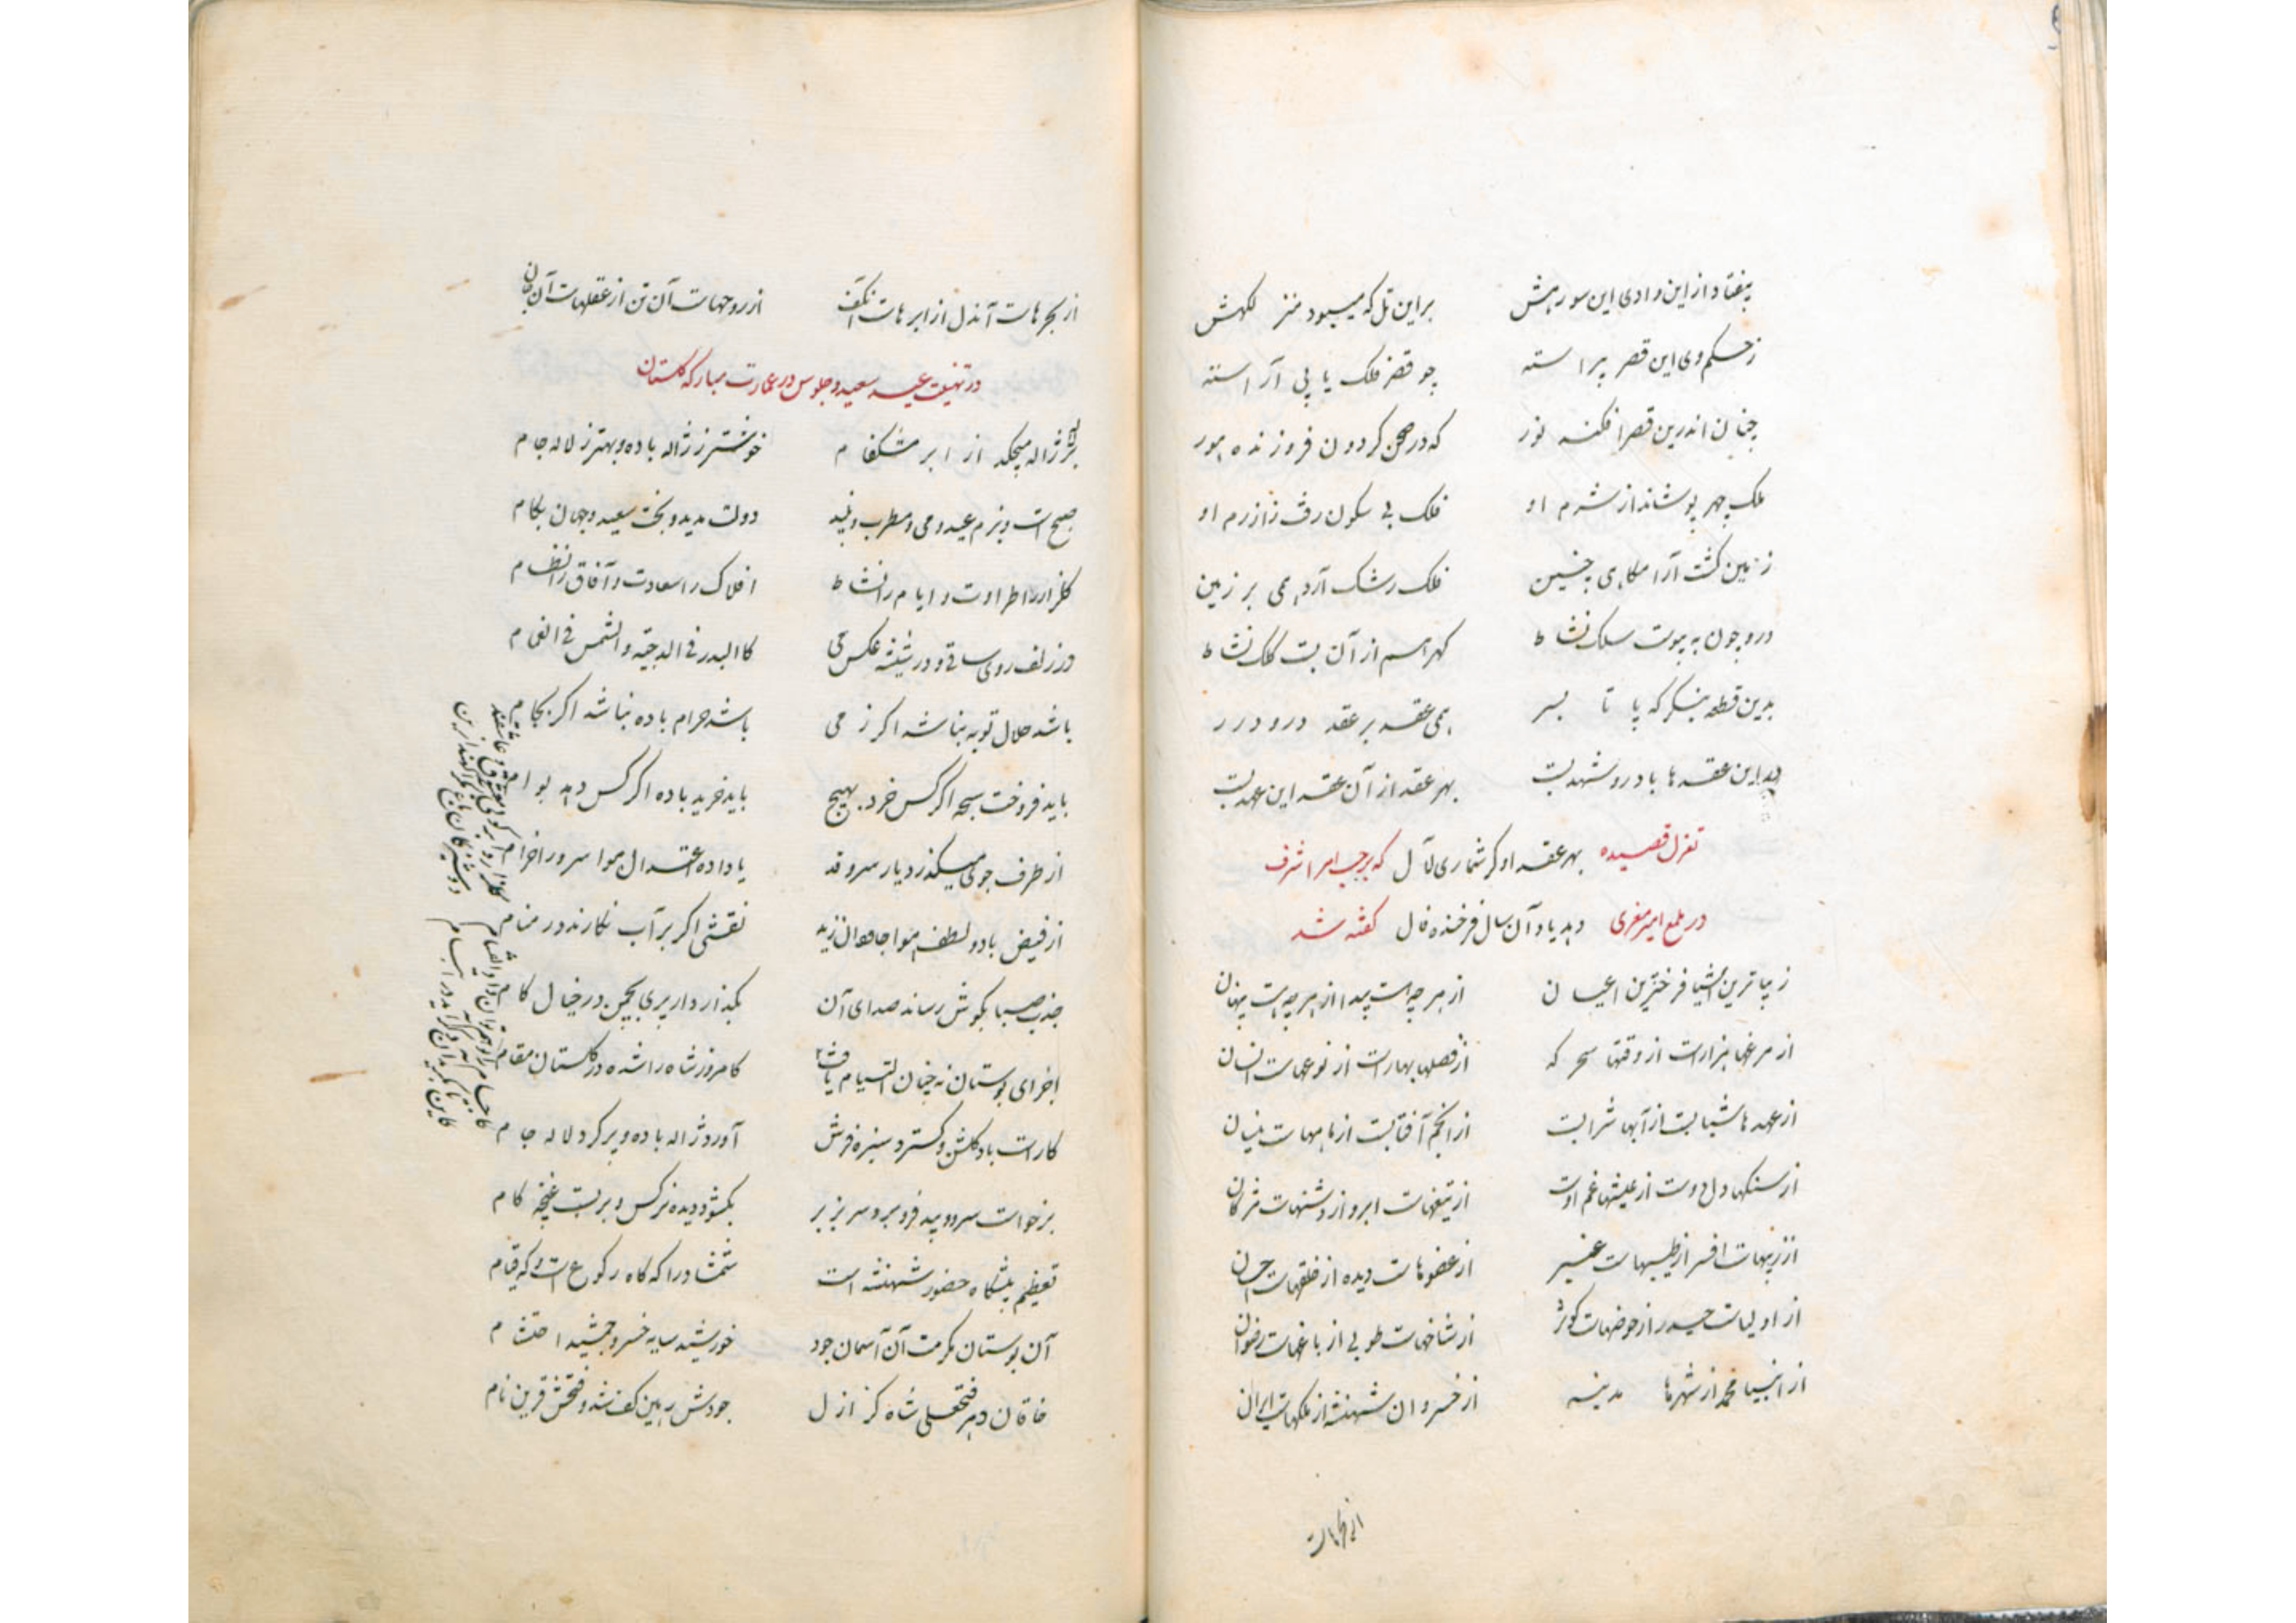 بیفتاد از این وادی این سو رهش براین تل که میبود منز لگهش
ز حکم وی این قصر پیراسته چو قصر فلک یا پی آراسته
چنان اندرین قصر افکند نور که در صحن کردون فروزنده هور
ملک چهر پوشاند از شرم او فلک بی سکون رفت ز آزرم او
زمین کشت آرامکاهی چنین فلک رشک آرد همی بر زمین
درو چون به پیوست سلک نشاط کهر اسم از آن بست کلک نشاط
بدین قطعه بنکر که پا تا بسر همی عقد بر عقد در و درر
این عقدها با در و شهد بست بهر عقد از آن عقد این عهد بست
تغزل قصیده بهر عقد او کر شماری لآل که بر حسب امر اشرف
در تتبع امیر معزی دهد یاد آن سال فرخنده فال کفته شد
زیباترین اشیا فرختترین اعیان از هر چه هست پیدا از هر چه هست پنهان
از مرغها هزارست از وقتها سحرکه از فصلها بهارست از نوعهاست انسان
از عهدها شبابست از آبها شرابست از انجم آفتابست از ماههاست نیسان
از سنکها دل دوست از عیشها غم اوست از تیغهاست ابرو از دشنهاست مژکان
از زیبهاست افسر از طیبهاست عنبر از عضوهاست دیده از خلقهاست احسان
از اولیاست حیدر از حوضهاست کوثر از شاخهاست طوبی از باغهاست رضوان
از انبیا محمد از شهرها مدینه از خسروان شهنشه از ملکهاست ایران
از بحرهاست
از بحرهاست آندل از ابرهاست آنکف از روحهاست آن تن از عقلهاست آن جان
در تهنیت عید سعید و جلوس در عمارت مبارکه کلستان
بر لاله ژاله میچکد از ابر مشکفام خوشتر ز ژاله باده و بهتر ز لاله جام
صبح است و بزم عید و می و مطرب و نبید دولت مدید و بخت سعید و جهان بکام
کلزار را طراوت و ایام را نشاط افلاک را سعادت و آفاق را نظام
در زلف روی ساقی و در شیشه عکس می کالبدر فی الدجیة و الشمس فی الغمام
باشد حلال توبه نباشد اکر ز می باشد حرام باده نباشد اکر بجام
باید فروخت سبحه اکر کس خرد بهیچ باید خرید باده اکر کس دهد بوام
از طرف جوی میکذرد یار سرو قد یا داده اعتدال هوا سرو را خرام
از فیض باد و لطف هوا جاودان زید نقشی اکر بر آب نکارند در منام
جذب صبا بکوش رساند صدای آن بکذار دار پری بچمن در خیال کام
اجزای بوستان نه چنان التیام یافت کامروز شاه را شده در کلستان مقام
کارست باد کلشن و کسترد سبزه فرش آورد ژاله باده و پر کرد لاله جام
برخواست سرو و بید فرو برد سر بزیر بکشود دیده نرکس و بربست غنچه کام
تعظیم پیشکاه حضور شهنشه است شمشاد را که کاه رکوع است و که قیام
آن بوستان مکرمت آن آسمان جود خورشید سایه خسرو جمشید احتشام
خاقان دهر فتحعلی شاه کز ازل جودش رهین کف شد و فتحش قرین نام